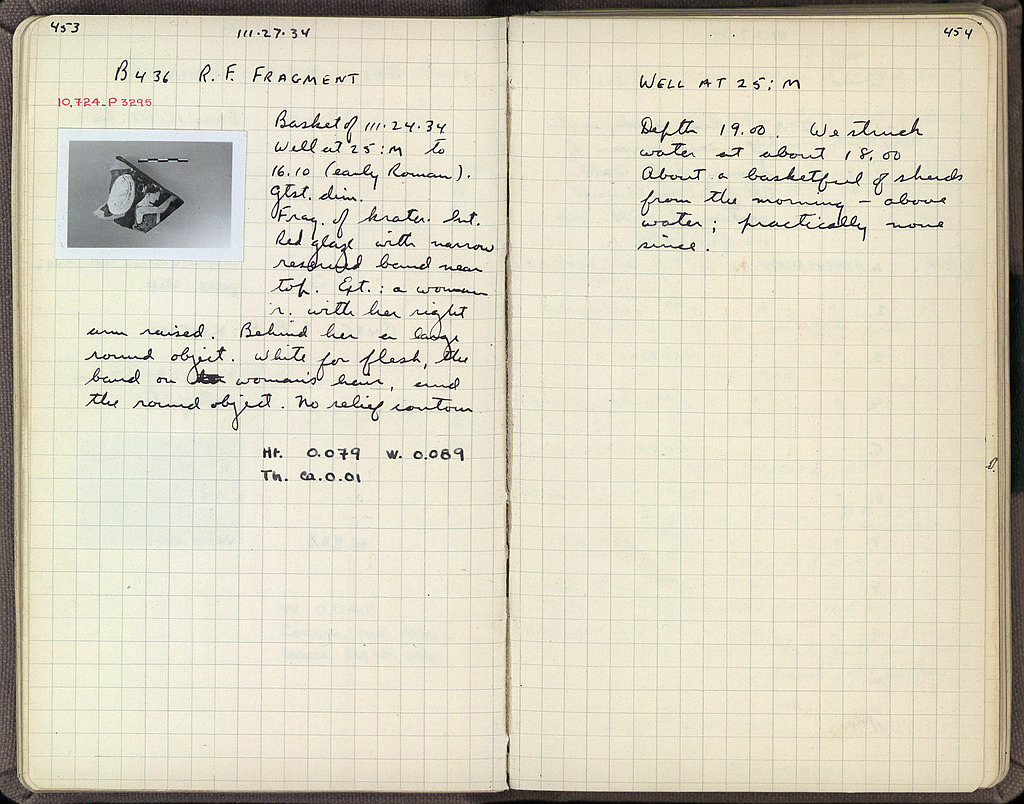 453
111·27·34
B436 R. F. FRAGMENT
10,724_P 3295
Basket of 111·24·34
Well at 25:M to
16.10 (early Roman).
Gtst. dim.
Frag. of krater. Int.
Red glaze with narrow
reserved band near
top. Ext.: a woman
r. with her right
arm raised. Behind her a large
round object. White for flesh, the
band on woman's hair, and
the round object. No relief contour
Ht. 0.079 W. 0.089
Th. ca. 0.01
454
WELL AT 25:M
Depth 19.00. We struck
water at about 18.00
About a basketful of sherds
from the morning — above
water; practically none
since.